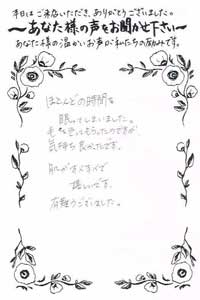 本日はご来店いただき、ありがとうございました。
～あなた様の声をお聞かせ下さい～
あなた様の温かいお声が私たちの励みです。
ほとんどの時間を
眠ってしまいました。
毛を剃ってもらったのですが
気持ち良かったです。
肌がすべすべで
嬉しいです。
有難うございました。